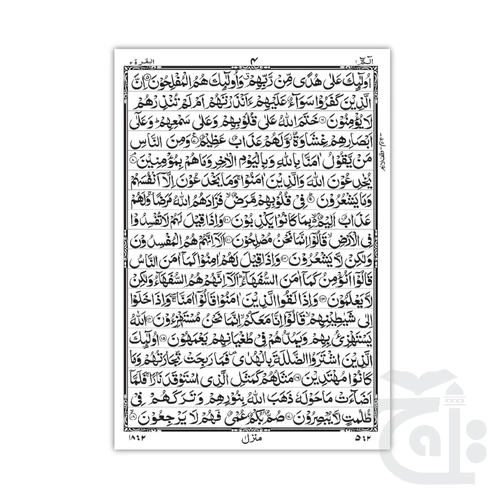 الٓمّٓ ١ ٤ البقرة ٢
اُولٰٓئِكَ عَلٰى هُدًى مِّنْ رَّبِّهِمْ وَاُولٰٓئِكَ هُمُ الْمُفْلِحُوْنَ ۝ اِنَّ
الَّذِيْنَ كَفَرُوْا سَوَآءٌ عَلَيْهِمْ ءَاَنْذَرْتَهُمْ اَمْ لَمْ تُنْذِرْهُمْ
لَا يُؤْمِنُوْنَ ۝ خَتَمَ اللّٰهُ عَلٰى قُلُوْبِهِمْ وَعَلٰى سَمْعِهِمْ ؕ وَعَلٰٓى
اَبْصَارِهِمْ غِشَاوَةٌ ؗ وَّلَهُمْ عَذَابٌ عَظِيْمٌ ۝ وَمِنَ النَّاسِ
مَنْ يَّقُوْلُ اٰمَنَّا بِاللّٰهِ وَبِالْيَوْمِ الْاٰخِرِ وَمَا هُمْ بِمُؤْمِنِيْنَ ۝
يُخٰدِعُوْنَ اللّٰهَ وَالَّذِيْنَ اٰمَنُوْا ۚ وَمَا يَخْدَعُوْنَ اِلَّآ اَنْفُسَهُمْ
وَمَا يَشْعُرُوْنَ ۝ فِيْ قُلُوْبِهِمْ مَّرَضٌ ۙ فَزَادَهُمُ اللّٰهُ مَرَضًا ۚ وَلَهُمْ
عَذَابٌ اَلِيْمٌ ۢ بِمَا كَانُوْا يَكْذِبُوْنَ ۝ وَاِذَا قِيْلَ لَهُمْ لَا تُفْسِدُوْا
فِي الْاَرْضِ ۙ قَالُوْٓا اِنَّمَا نَحْنُ مُصْلِحُوْنَ ۝ اَلَآ اِنَّهُمْ هُمُ الْمُفْسِدُوْنَ
وَلٰكِنْ لَّا يَشْعُرُوْنَ ۝ وَاِذَا قِيْلَ لَهُمْ اٰمِنُوْا كَمَآ اٰمَنَ النَّاسُ
قَالُوْٓا اَنُؤْمِنُ كَمَآ اٰمَنَ السُّفَهَآءُ ؕ اَلَآ اِنَّهُمْ هُمُ السُّفَهَآءُ وَلٰكِنْ
لَّا يَعْلَمُوْنَ ۝ وَاِذَا لَقُوا الَّذِيْنَ اٰمَنُوْا قَالُوْٓا اٰمَنَّا ۖۚ وَاِذَا خَلَوْا
اِلٰى شَيٰطِيْنِهِمْ ۙ قَالُوْٓا اِنَّا مَعَكُمْ ۙ اِنَّمَا نَحْنُ مُسْتَهْزِءُوْنَ ۝ اَللّٰهُ
يَسْتَهْزِئُ بِهِمْ وَيَمُدُّهُمْ فِيْ طُغْيَانِهِمْ يَعْمَهُوْنَ ۝ اُولٰٓئِكَ
الَّذِيْنَ اشْتَرَوُا الضَّلٰلَةَ بِالْهُدٰى ۪ فَمَا رَبِحَتْ تِّجَارَتُهُمْ وَمَا
كَانُوْا مُهْتَدِيْنَ ۝ مَثَلُهُمْ كَمَثَلِ الَّذِي اسْتَوْقَدَ نَارًا ۚ فَلَمَّآ
اَضَآءَتْ مَا حَوْلَهٗ ذَهَبَ اللّٰهُ بِنُوْرِهِمْ وَتَرَكَهُمْ فِيْ
ظُلُمٰتٍ لَّا يُبْصِرُوْنَ ۝ صُمٌّ ۢ بُكْمٌ عُمْيٌ فَهُمْ لَا يَرْجِعُوْنَ ۝
٥٤٢ منزل ١٨٤٢